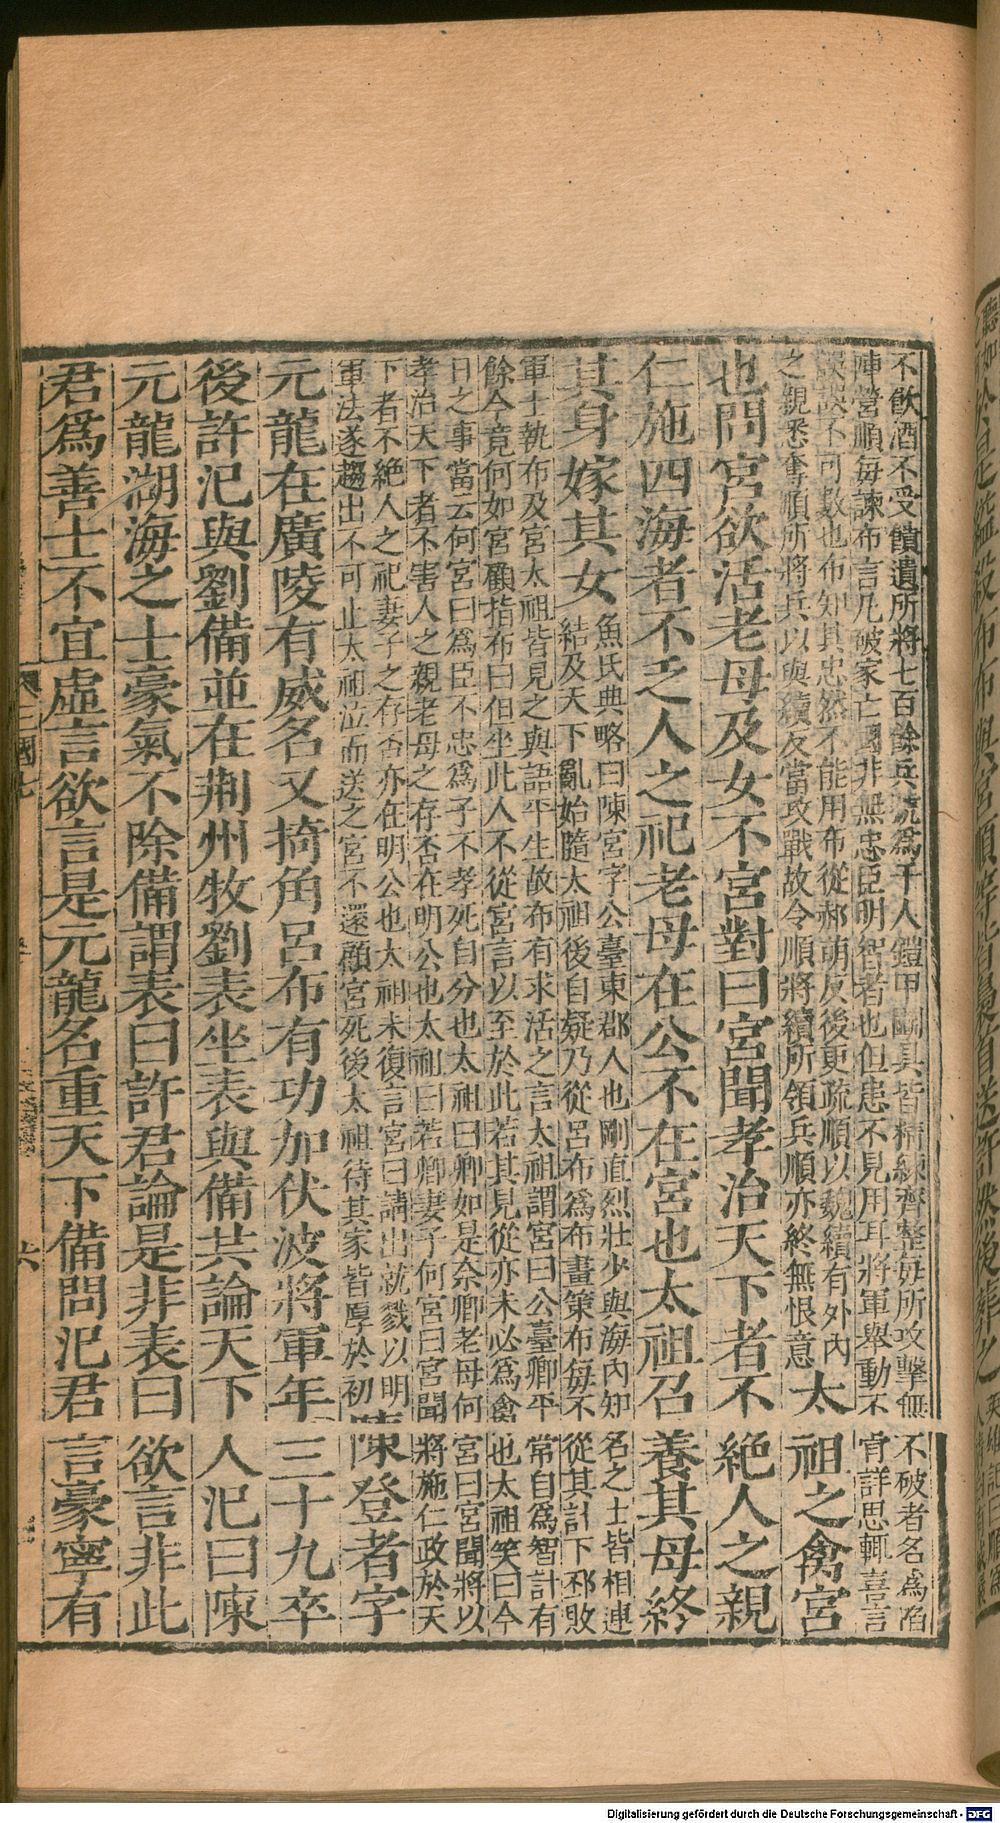 不飲酒不受饋遺所將七百餘兵號爲千人鎧甲鬭具皆精練齊整每所攻擊無不破者名爲陷
陣營順每諫布言凡破家亡國非無忠臣明智者也但患不見用耳將軍舉動不肯詳思輒喜言
誤誤不可數也布知其忠然不能用布從郝萌反後更疏順以魏續有外內
之親悉奪順所將兵以與續及當攻戰故令順將續所領兵順亦終無恨意
太祖之禽宮
也問宮欲活老母及女不宮對曰宮聞孝治天下者不絕人之親
仁施四海者不乏人之祀老母在公不在宮也太祖召養其母終
其身嫁其女
魚氏典略曰陳宮字公臺東郡人也剛直烈壯少與海內知名之士皆相連
結及天下亂始隨太祖後自疑乃從呂布爲布畫策布每不從其計下邳敗
軍士執布及宮太祖皆見之與語平生故布有求活之言太祖謂宮曰公臺卿平常自爲智計有
餘今竟何如宮顧指布曰但坐此人不從宮言以至於此若其見從亦未必爲禽也太祖笑曰今
日之事當云何宮曰爲臣不忠爲子不孝死自分也太祖曰卿如是奈卿老母何宮曰宮聞將以
孝治天下者不害人之親老母之存否在明公也太祖曰若卿妻子何宮曰宮聞將施仁政於天
下者不絕人之祀妻子之存否亦在明公也太祖未復言宮曰請出就戮以明
軍法遂趨出不可止太祖泣而送之宮不還顧宮死後太祖待其家皆厚於初
陳登者字
元龍在廣陵有威名又掎角呂布有功加伏波將軍年三十九卒
後許汜與劉備並在荆州牧劉表坐表與備共論天下人汜曰陳
元龍湖海之士豪氣不除備謂表曰許君論是非表曰欲言非此
君爲善士不宜虛言欲言是元龍名重天下備問汜君言豪寧有
Digitalisierung gefördert durch die Deutsche Forschungsgemeinschaft - DFG